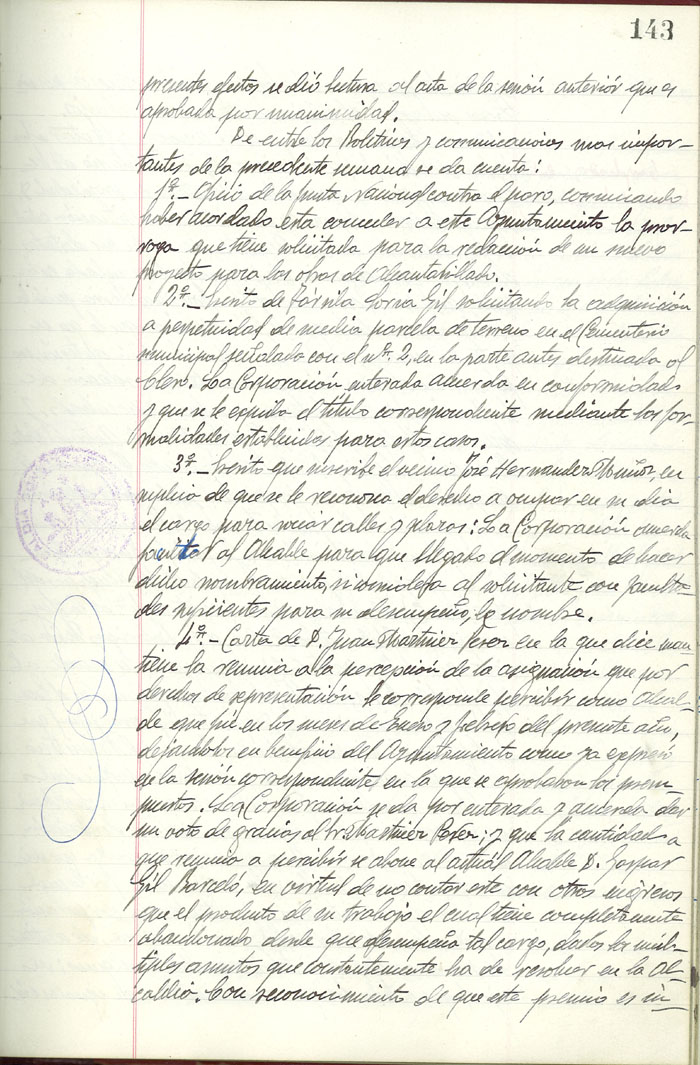 143
presentes efectos se dió lectura al acta de la sesión anteriór que es
aprobada por unanimidad.
De entre los Boletines y comunicaciones mas impor-
tantes de la precedente semana se da cuenta:
1º.- Oficio de la Junta Nacional contra el paro, comunicando
haber acordado esta conceder a este Ayuntamiento la pror-
roga que tiene solicitada para la redacción de un nuevo
proyecto para las obras de Alcantarillado.
2º.- Escrito de Soria Gil solicitando la adquisición
a perpetuidad de media parcela de terreno en el Cementerio
municipal señalada con el nº. 2, en la parte antes destinada al
clero. La Corporación enterada acuerda en conformidad
y que se le expida el título correspondiente mediante las for-
malidades establecidas para estos casos.
3º.- Escrito que suscribe el vecino José Hernandez Muñoz, en
suplica de que se le reconozca el derecho a ocupar en su dia
el cargo para rociar calles y plazas: La Corporación acuerda
facultar al Alcalde para que llegado el momento de hacer
dicho nombramiento, si considera al solicitante con faculta-
des suficientes para su desempeño, le nombre.
4º.- Carta de D. Juan Martinez Perez en la que dice man-
tiene la renuncia a la percepción de la asignación que por
derechos de representación le corresponde percibir como Alcal-
de que fué en los meses de Enero y Febrero del presente año,
dejandolos en beneficio del Ayuntamiento como ya expresó
en la sesión correspondiente en la que se aprobaban los presu-
puestos. La Corporación se da por enterada y acuerda dar
un voto de gracias al Sr. Martinez Perez; y que la cantidad a
que renuncia a percibir se abone al actuál Alcalde D. Gaspar
Gil Barceló, en virtud de no contar este con otros ingresos
que el producto de su trabajo el cual tiene completamente
abandonado desde que desempeña tal cargo, dados los múl-
tiples asuntos que constantemente ha de resolver en la Al-
caldia. Con reconocimiento de que este premio es in-